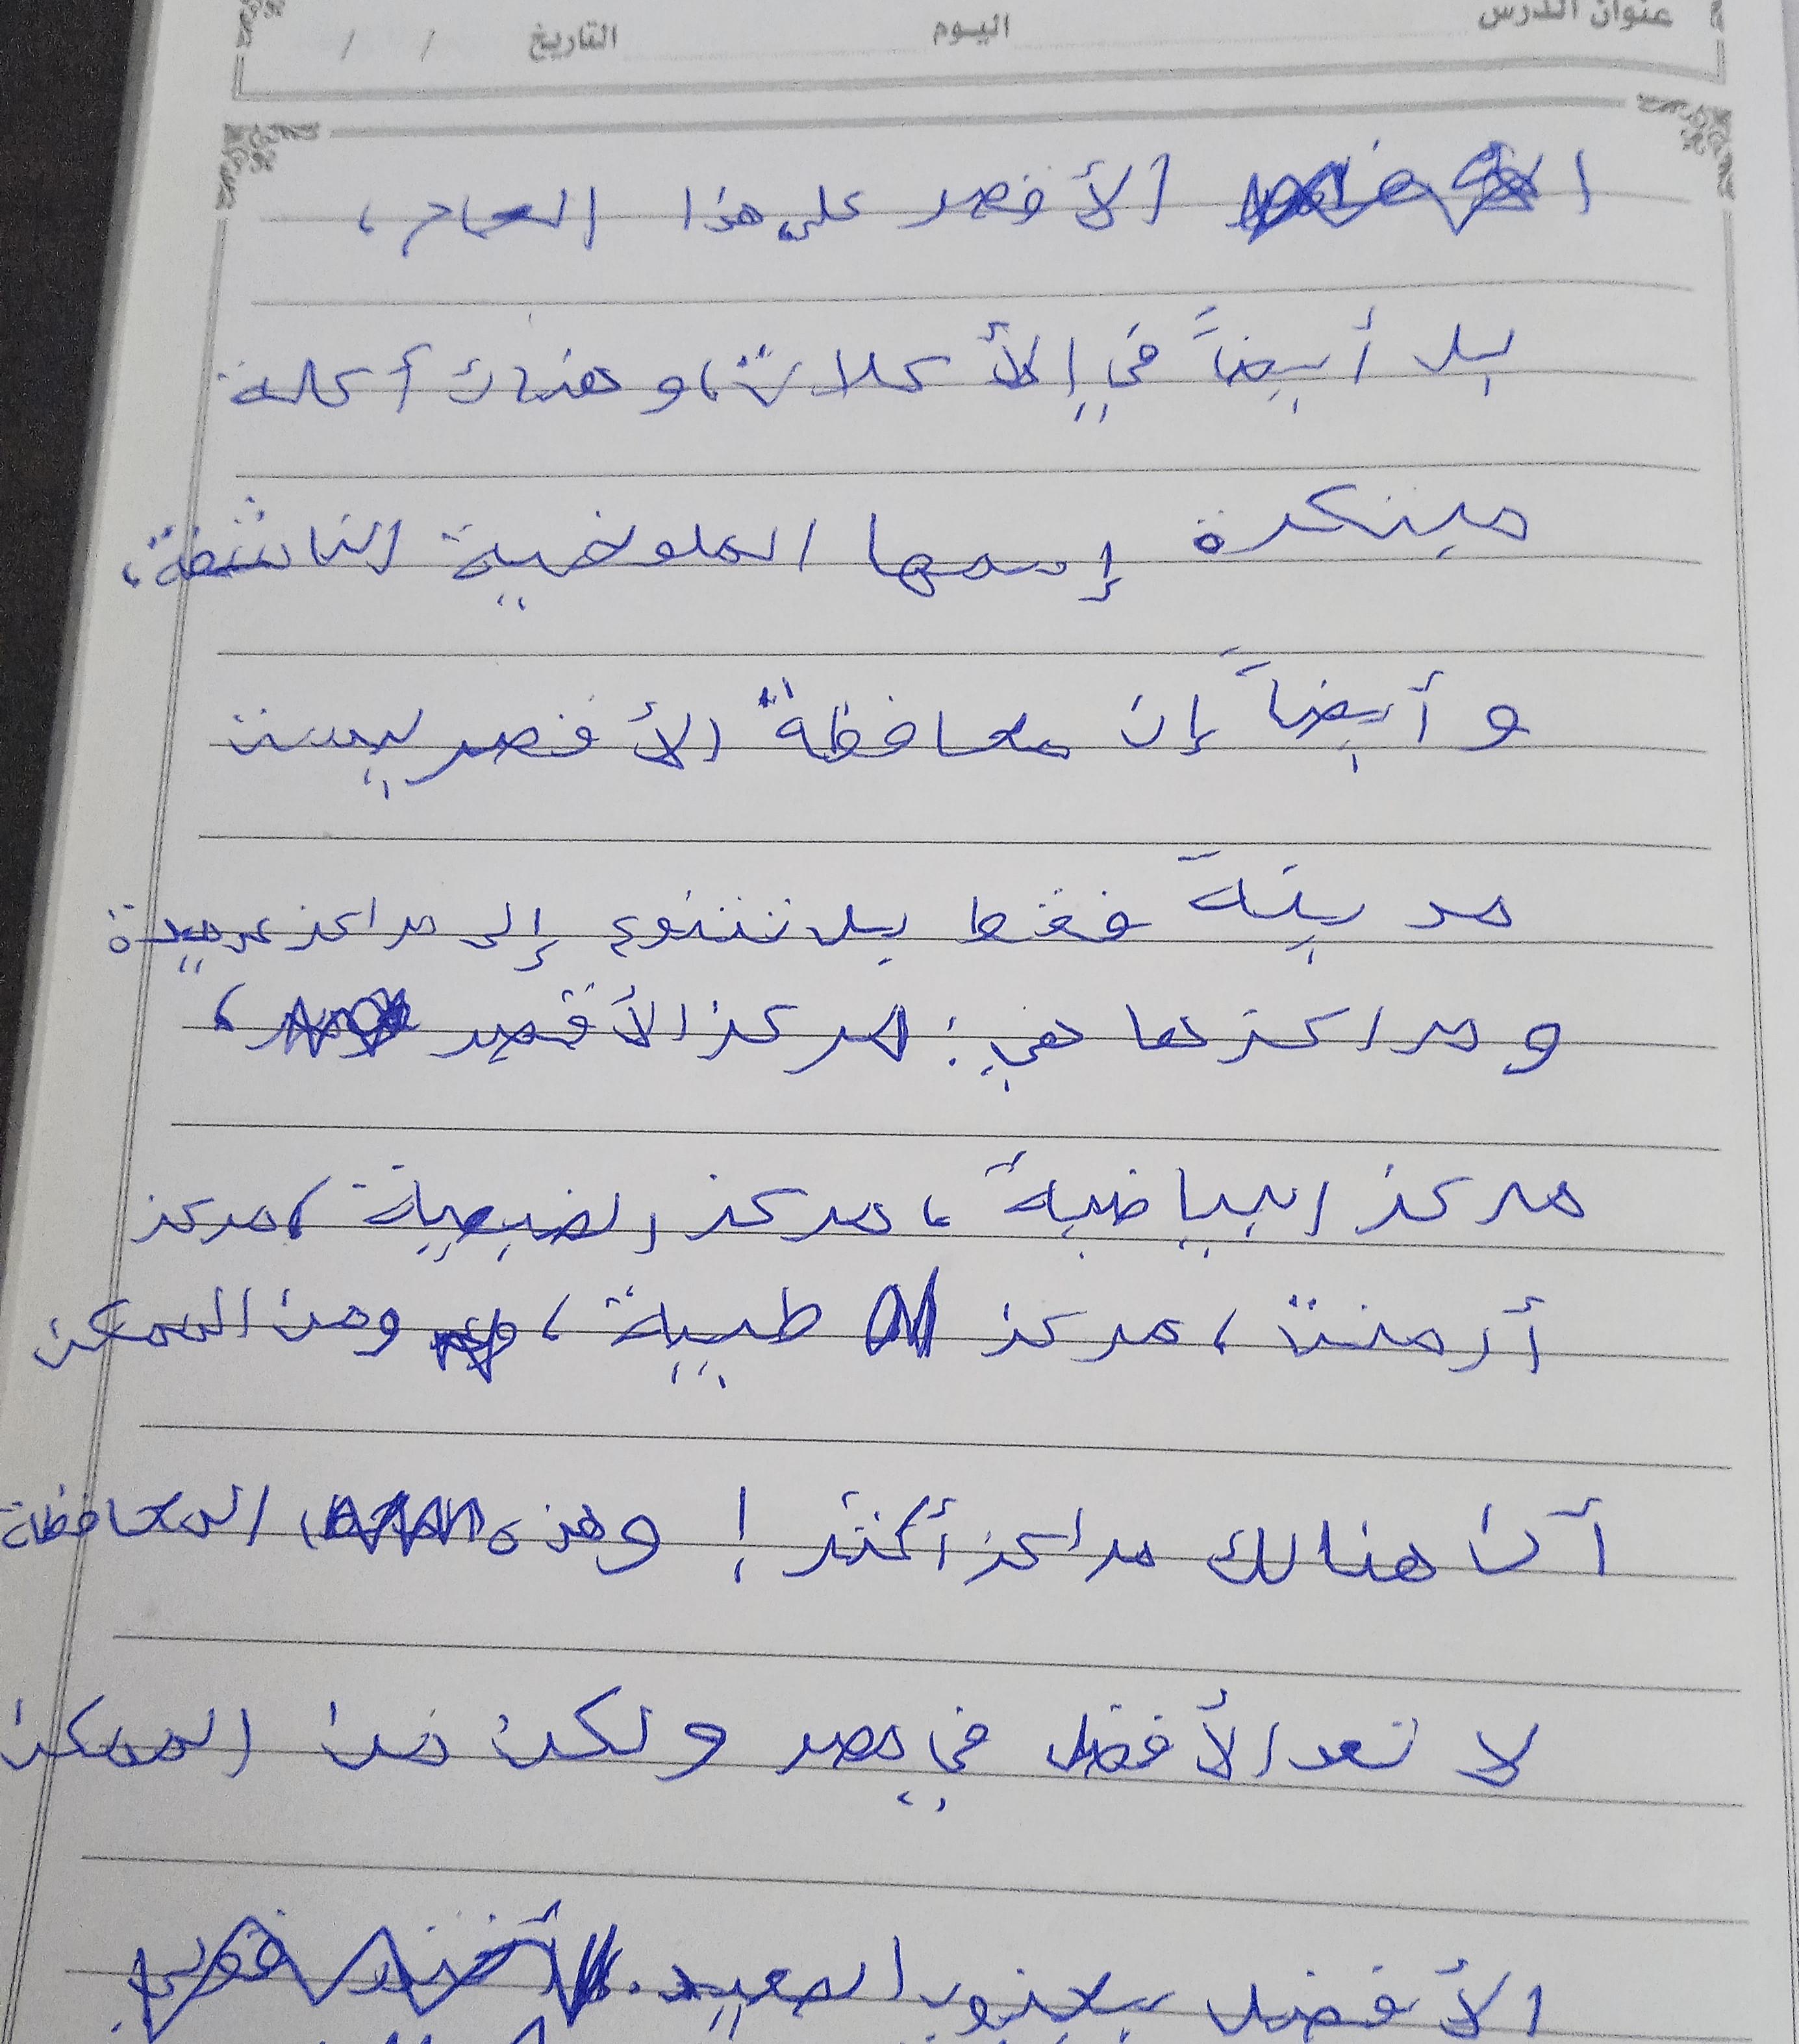 عنوان الدرس اليوم التاريخ / /
الأقصر على هذا العام،
بل أيضاً في الأكلات، وهناك أكلة
مبتكرة إسمها الملوخية الناشفة،
وأيضاً إن محافظة الأقصر ليست
مدينة فقط بل تتنوع إلى مراكز عديدة
ومراكزها هي: مركز الأقصر،
مركز البياضية، مركز الضبعية، مركز
أرمنت، مركز طيبة، ومن الممكن
آن هنالك مراكز أكثر! وهذه المحافظة
لا تعد الأفضل في مصر ولكن من الممكن
الأفضل بجنوب الصعيد.